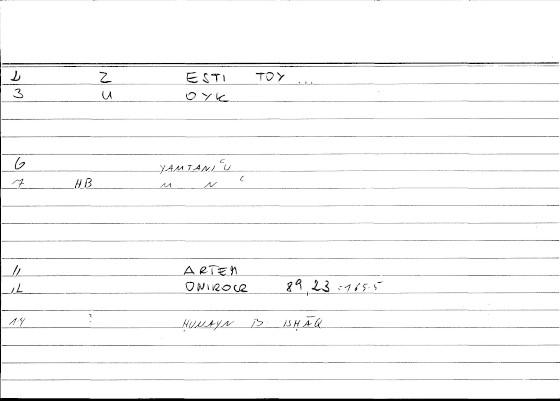 2 Z ESTI TOY ...
3 U OYK
6 YAMTANIʿU
7 HB M N ʿ
11 ARTEM
12 ONIROCR 89,23 = 165.5
14 ? ḤUNAYN B ISḤĀQ